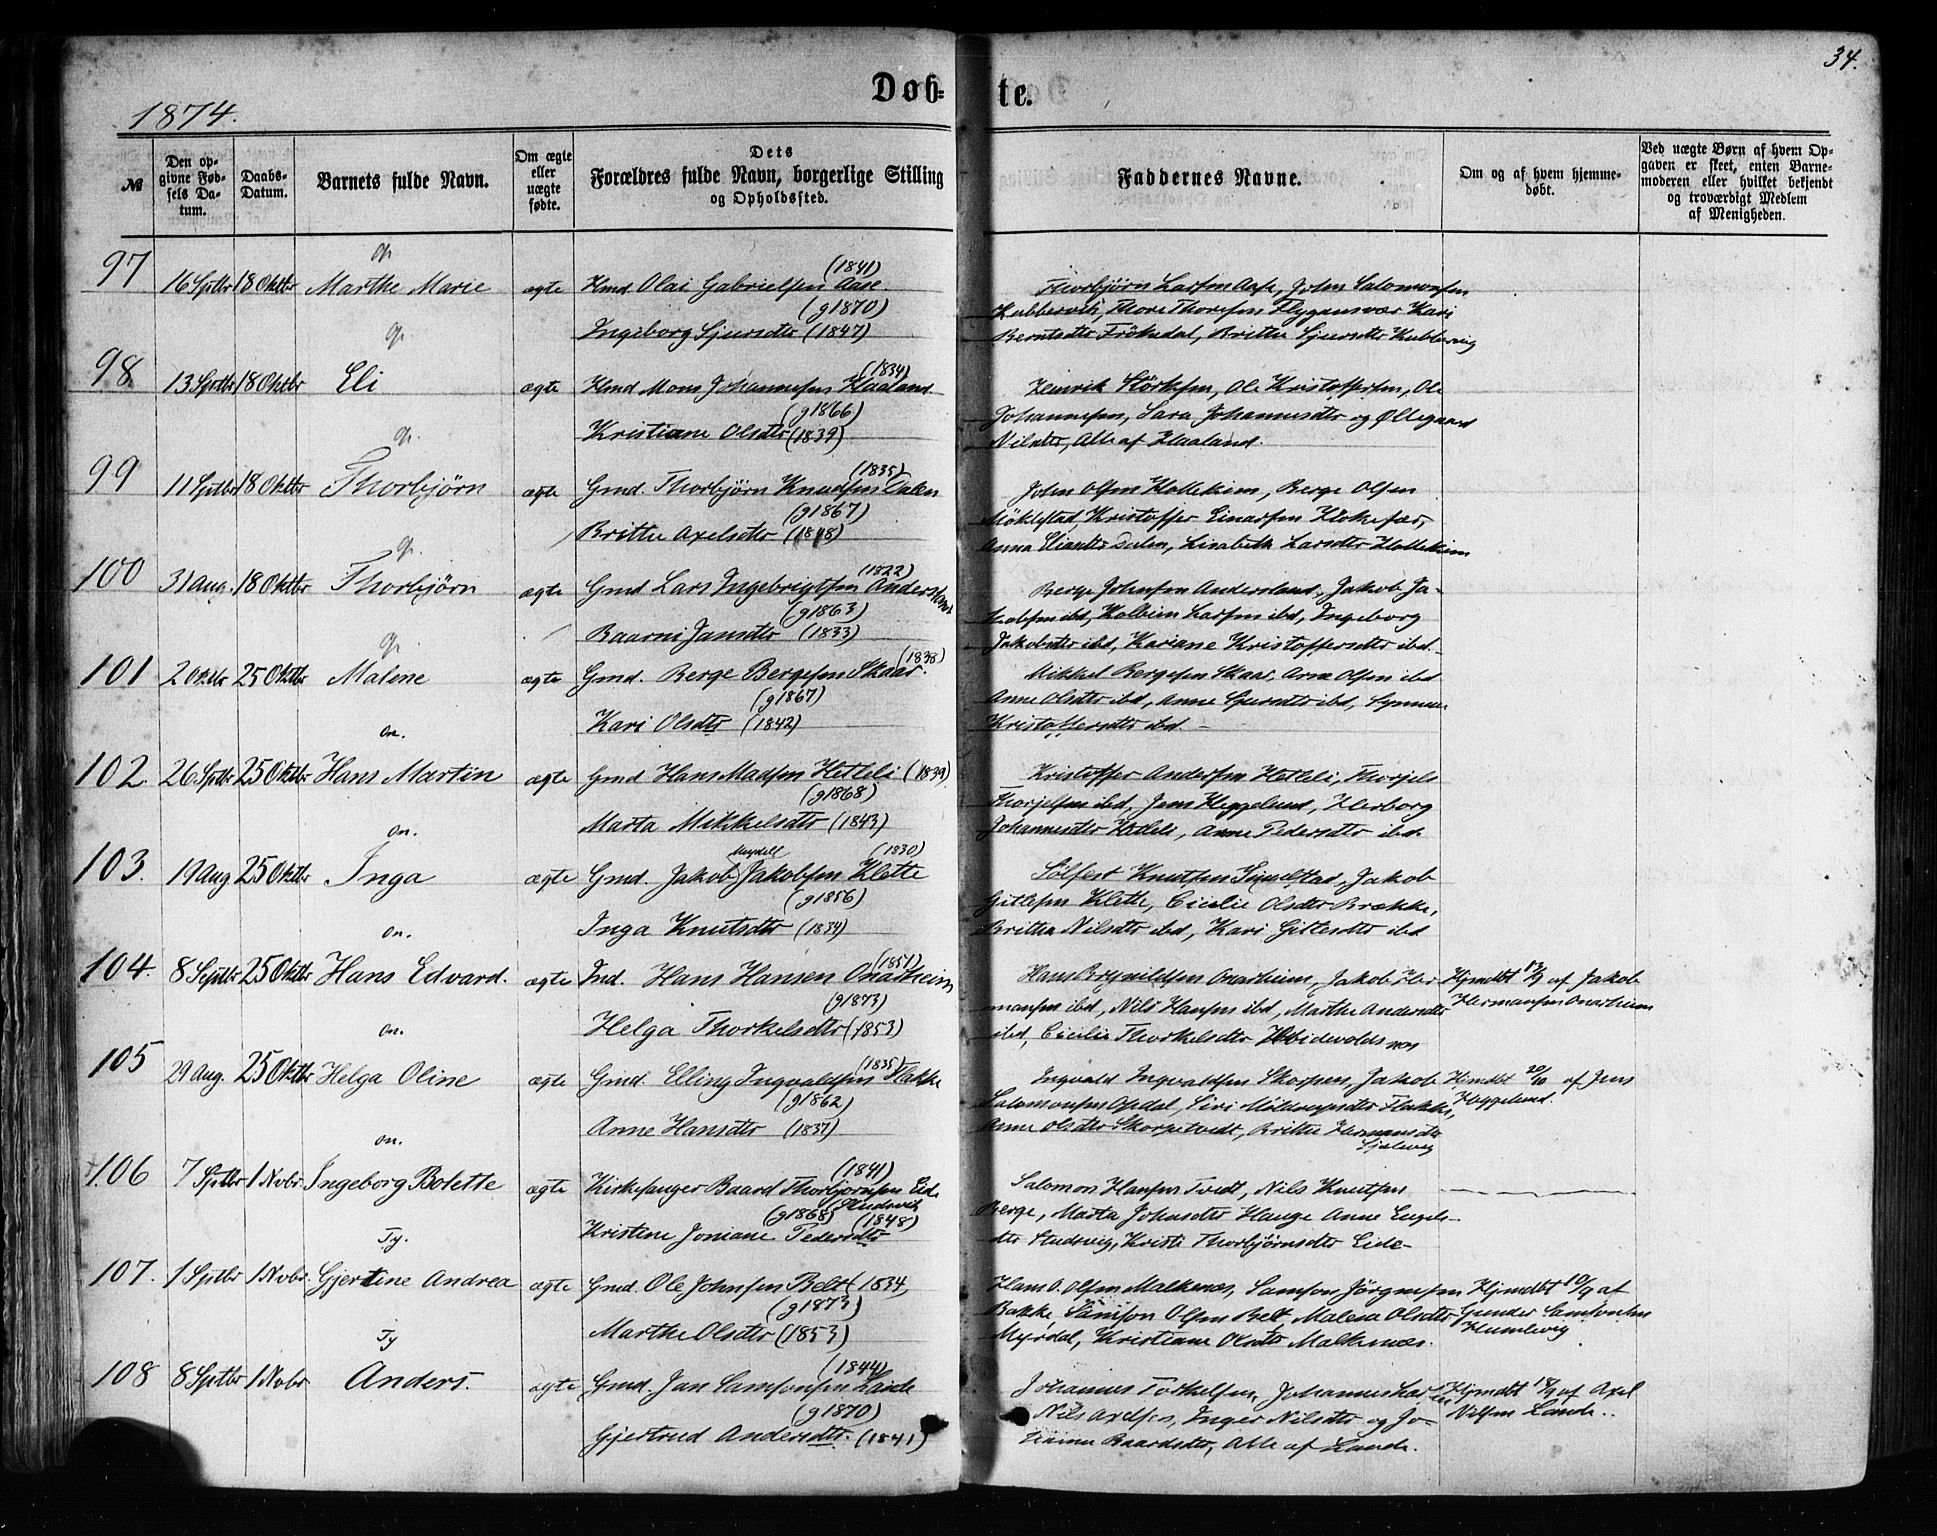 34.
Døb-te.
1874.
№ Den opgivne Fødsels Datum. Daabs-Datum. Barnets fulde Navn. Om ægte eller uægte fødte. Dets Forældres fulde Navn, borgerlige Stilling og Opholdssted. Faddernes Navne. Om og af hvem hjemmedøbt. Ved uægte Børn af hvem Opgaven er skeet, enten Barnemoderen eller hvilket bekjendt og troværdigt Medlem af Menigheden.
(1841)
97 16 Sptbr 18 Oktbr Marthe Marie ægte Hmd. Olai Gabrielsen Aase. Thorbjörn Larsen Aase, John Salomonsen
(g1870)
Thore Thoresen Flygansvær Kari
Ingeborg Sjursdtr (1847) Berntsdtr Frökedal, Britta Sjursdtr
(1834)
98 13 Sptbr 18 Oktbr Eli ægte Hmd Mons Johannesen Haaland Henrik Störkesen, Ole Kristoffersen, Ole
(g1866)
Johannesen, Sara Johannesdtr og Øllegaard
Kristiane Olsdtr (1839) Nilsdtr, Alle af Haaland.
(1835)
99 11 Sptbr 18 Oktbr Thorbjörn ægte Gmd. Thorbjörn Knudsen Dalen John Olsen Holtekim, Berge Olsen
(g1867)
Möklestad, Kristoffer Einarsen
Britta Axelsdtr Anna Dalen, Lisabeth Larsdtr
(1822)
100 31 Aug. 18 Oktbr Thorbjörn ægte Gmd Lars Ingebrigtsen Andersland Berge Johnsen Andersland, Jakob Ja-
(g1863)
kobsen ibd, Kolbein Larsen ibd, Ingeborg
Baarni Jansdtr (1833) Jakobsdtr ibd, Kariane Kristoffersdtr ibd.
(1838)
101 2 Oktbr 25 Oktbr Malene ægte Gmd. Berge Bergesen Skaar. Mikkel Bergesen Skaar, Arne Olsen ibd
(g1867)
Anne Olsdtr ibd, Anne Sjursdtr ibd,
Kari Olsdtr (1842) Kristoffersdtr ibd. –
102 26 Sptbr 25 Oktbr Hans Martin ægte Gmd Hans Madsen Hetleli (1839) Kristoffer Andersen Hetleli, Thorjels
(g1868)
Thorjelsen ibd, Jens Heggelund, Herborg
Marta Mikkelsdtr (1843) Johannesdtr Hetleli, Anne Pedersdtr ibd
Meydell (1830)
103. 19 Aug 25 Oktbr Inga ægte Gmd. Jakob Jakobsen Klette Sølfest Knutsen, Jakob
(g1856)
Gitlesen Klette, Cicelie Olsdtr Brække,
Inga Knutsdtr (1834) Britta Nilsdtr ibd, Kari Gitlesdtr ibd
(1851)
104. 8 Septbr 25 Oktbr Hans Edvard. ægte Ind. Hans Hansen Onarheim Hans Onarheim, Jakob Her- Hjmdbt af Jakob
(g1873)
mansen ibd, Nils Hansen ibd, Marthe Andersdtr Hermansen Onarheim
Helga Thorkelsdtr (1853) ibd, Cicelie Thorkelsdtr
(1835)
105 29 Aug. 25 Oktbr Helga Oline ægte Gmd. Elling Ingvaldsen Flakke Ingvald Ingvaldsen Skorpen, Jakob Hjmdbt 20/10 af Jens
(g1862)
Salomonsen Opdal, Siri Flakke, Heggelund.
Anne Hansdtr (1837) Anne Olsdtr Skorpetvedt, Britta Hermansdtr
106 7 Sptbr 1 Novbr. Ingeborg Bolette ægte (1841) Kirkesanger Baard Thorbjörnsen Eide Salomon Hansen Tvedt, Nils Knutsen
(g1868) (1848)
Berge, Marta Johnsdtr Hauge Anne Engels-
Kristine Joniane Pedersdtr dtr Studvig, Kristi Thorbjörnsdtr Eide-
107. 1 Sptbr 1 Novbr. Gjertine Andrea ægte Gmd. Ole Johnsen Belt (1834, Hans O. Olsen Malkenes, Samson Jörgensen Hjmdbt 10/9 af
(g1873)
Bakke, Samson Olsen Belt, Malena Olsdtr Gunder Samsonsen
Marthe Olsdtr (1853) Myrdal, Kristiane Olsdtr Malkenæs. Humlevig
(1844)
108 8 Sptbr 1 Novbr Anders. ægte Gmd. Jan Samsonsen Lande Johannes Torkelsen, Johannes Hjmdbt af Axel
(g1870)
Nils Axelsen, Inger Nilsdtr og Jo- Nilsen Lande.
Gjertrud Andersdtr. (1841) Baardsdtr, Alle af Lande.